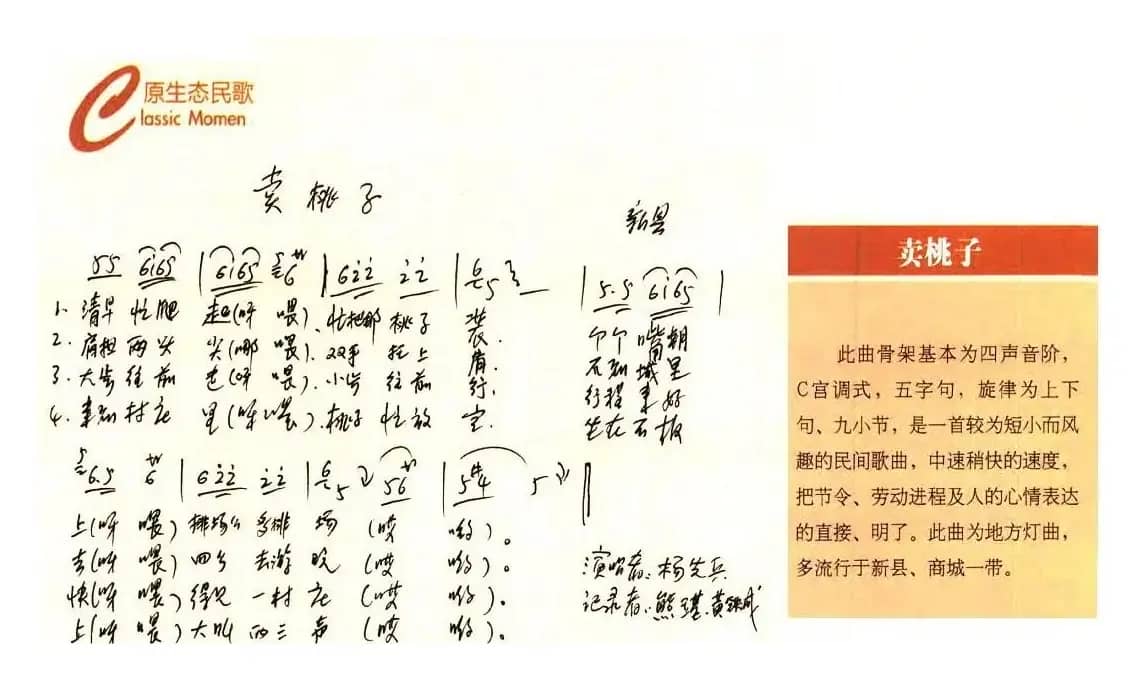 原生态民歌
Classic Momen
卖桃子
新县
55 6165 | 6165 6 | 622 22 | 5 | 5.5 6165 |
1. 清早 忙爬 起(呀 喂)、忙把那 桃子 装. 个个 嘴朝
2. 肩担 两头 尖(哪 喂). 双手 拦上 肩. 石到 城里
3. 大步 往前 走(呀 喂). 小步 往前 行. 行程 来好
4. 来到 村庄 里(呀 喂). 桃子 忙放 定. 坐在 石板
6.5 6 | 622 22 | 5 56 | 5#4 5 ‖
上(呀 喂) 排场么 多排 场 (哎 哟)。
去(呀 喂) 四乡 去游 玩 (哎 哟)。
快(呀 喂) 得见 一村 庄 (哎 哟)。
上(呀 喂) 大叫 两三 声 (哎 哟)。
演唱者:杨先兵
记录者:熊 黄铁成
卖桃子
此曲骨架基本为四声音阶，
C宫调式，五字句，旋律为上下
句、九小节，是一首较为短小而风
趣的民间歌曲，中速稍快的速度，
把节令、劳动进程及人的心情表达
的直接、明了。此曲为地方灯曲，
多流行于新县、商城一带。